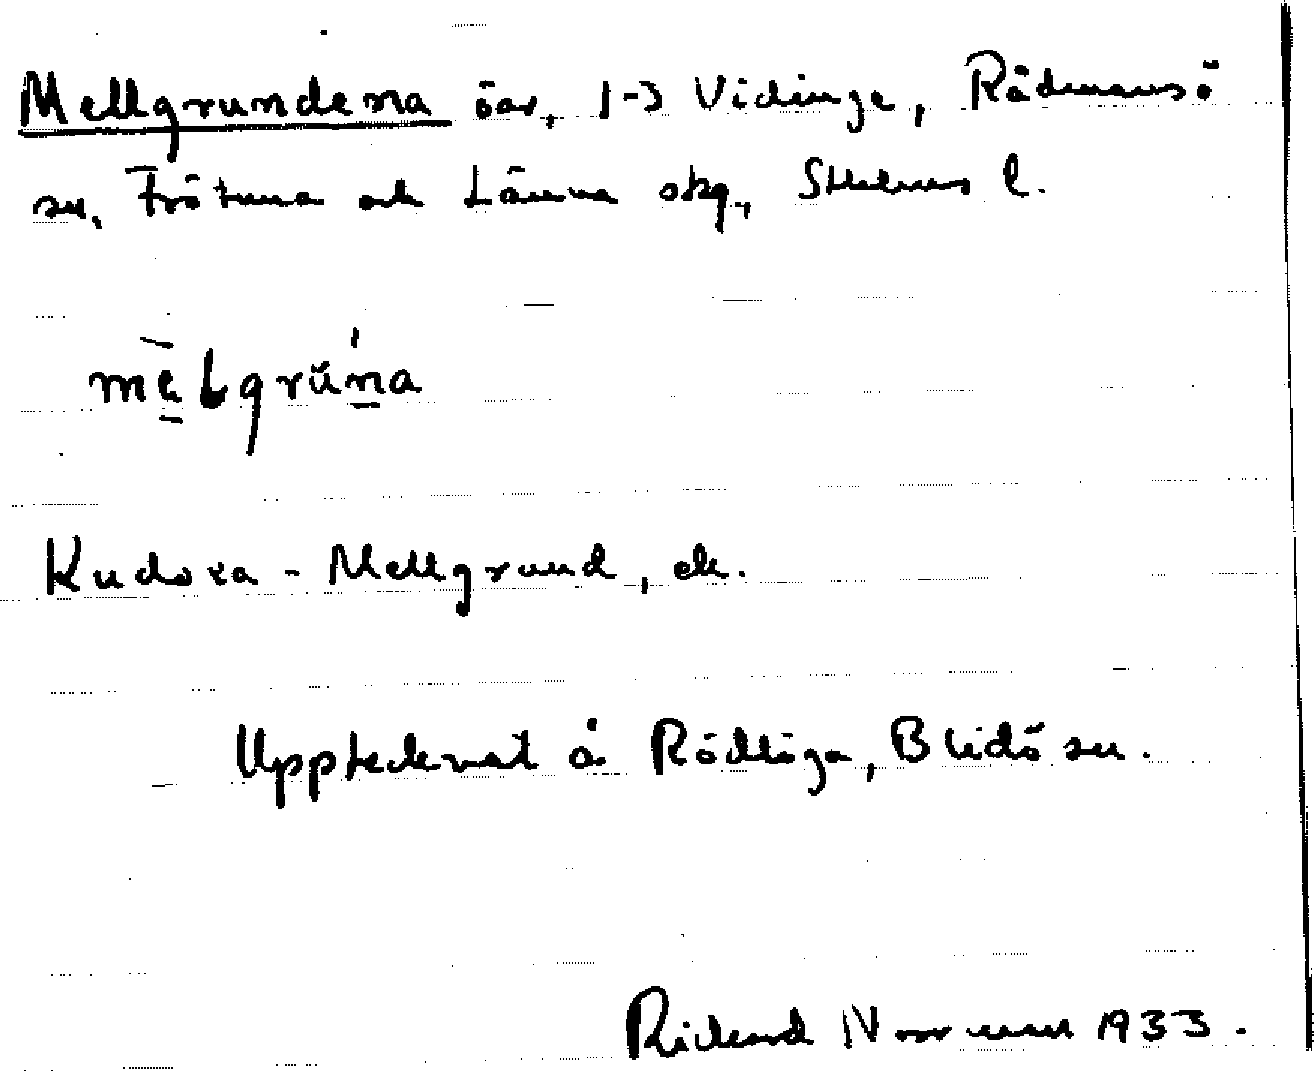 Mellgrundena öar, 1-3 Vidinge, Rådmansö
sn, Frötuna och Länna skg, Sthlms l.
mèlgrúna
Kudoxa - Mellgrund, ch.
Upptecknat å Rödlöga, Blidö sn.
Rickard Norrman 1933.